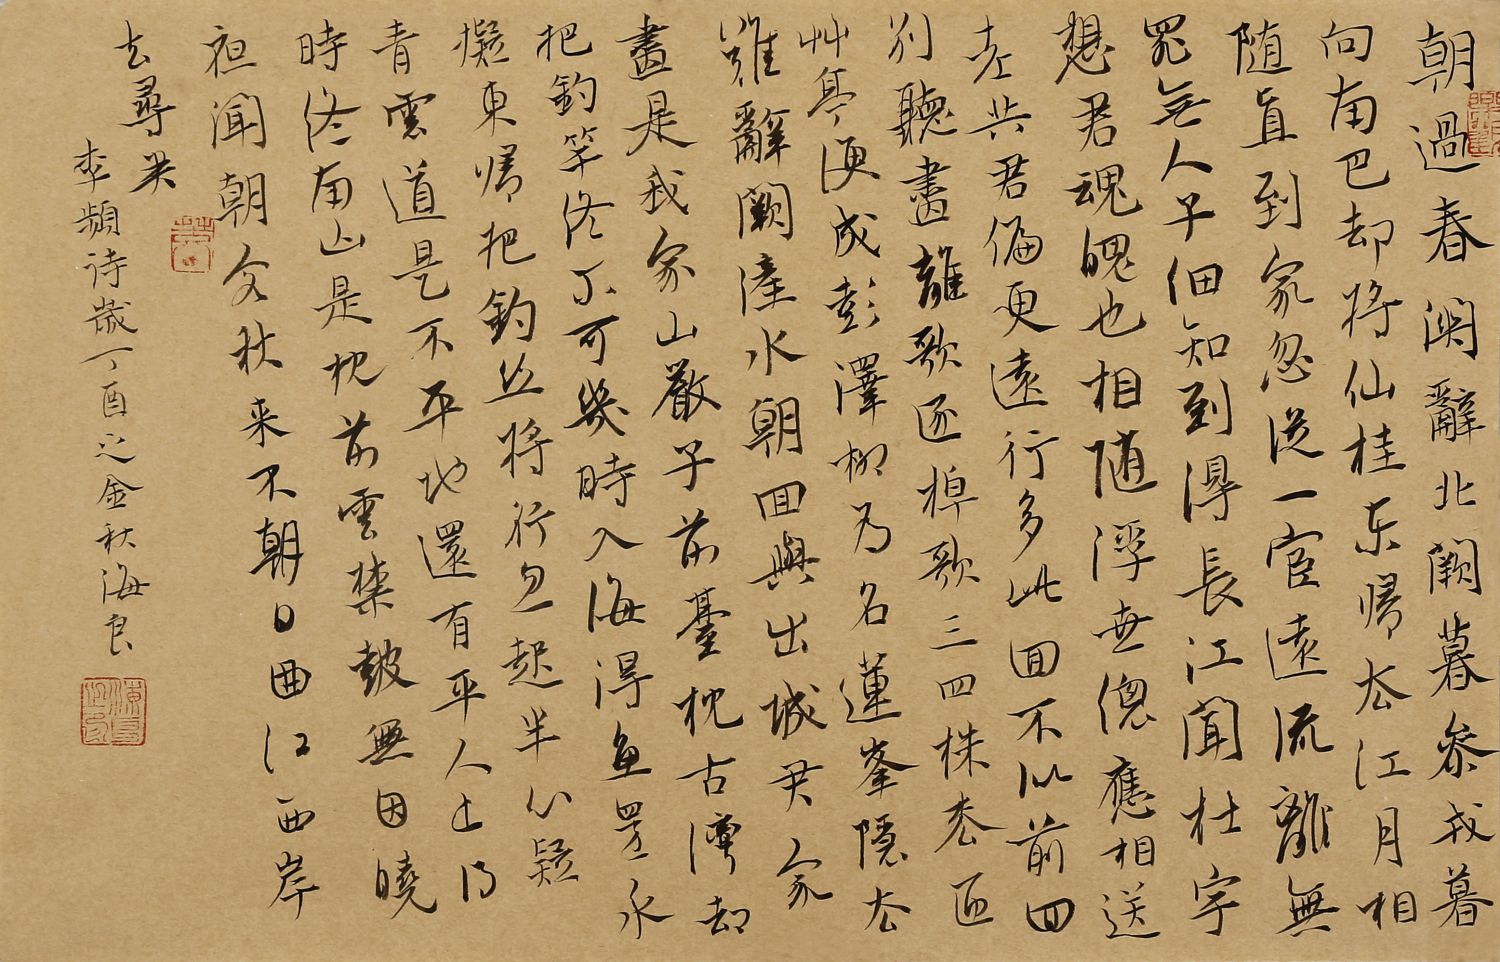 朝過春関辭北闕暮參戎暮
向南巴却將仙桂东歸去江月相
随直到家忽從一宦遠流離無
罪無人子細知到得長江聞杜宇
想君魂魄也相随浮世總應相送
老共君偏更遠行多此回不似前回
別聽盡離歌逐棹歌三四株松匝
艸亭便成彭澤柳為名蓮峯隱去
雖辭闕滻水朝回與出城尹家
盡是我家山嚴子前臺枕古灣却
把釣竿終不可幾時入海得魚還永
擬東歸把釣絲將行忽起半心疑
青雲道是不平地還有平人上得
時終南山是枕前雲禁鼓無因曉
聞朝客秋来不朝日曲江西岸
去尋
李頻詩歲丁酉之金秋海良